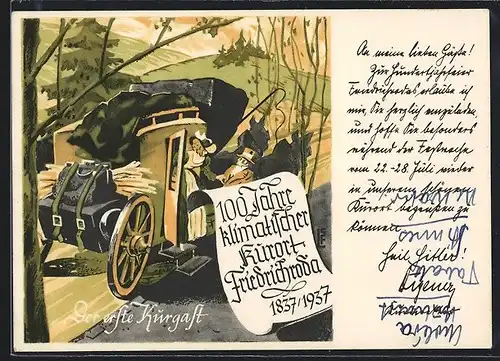 100 Jahre
klimatischer
Kurort
Friedrichroda
1837/1937
Der erste Kurgast
An meine lieben Gäste!
Zur Hundertjahrfeier
Friedrichrodas erlaube ich
mir, Sie herzlich einzuladen,
und hoffe Sie besonders
während der Festwoche
vom 22.-28. Juli wieder
in unserem schönen
Kurort begrüßen zu
können.
Heil Hitler!